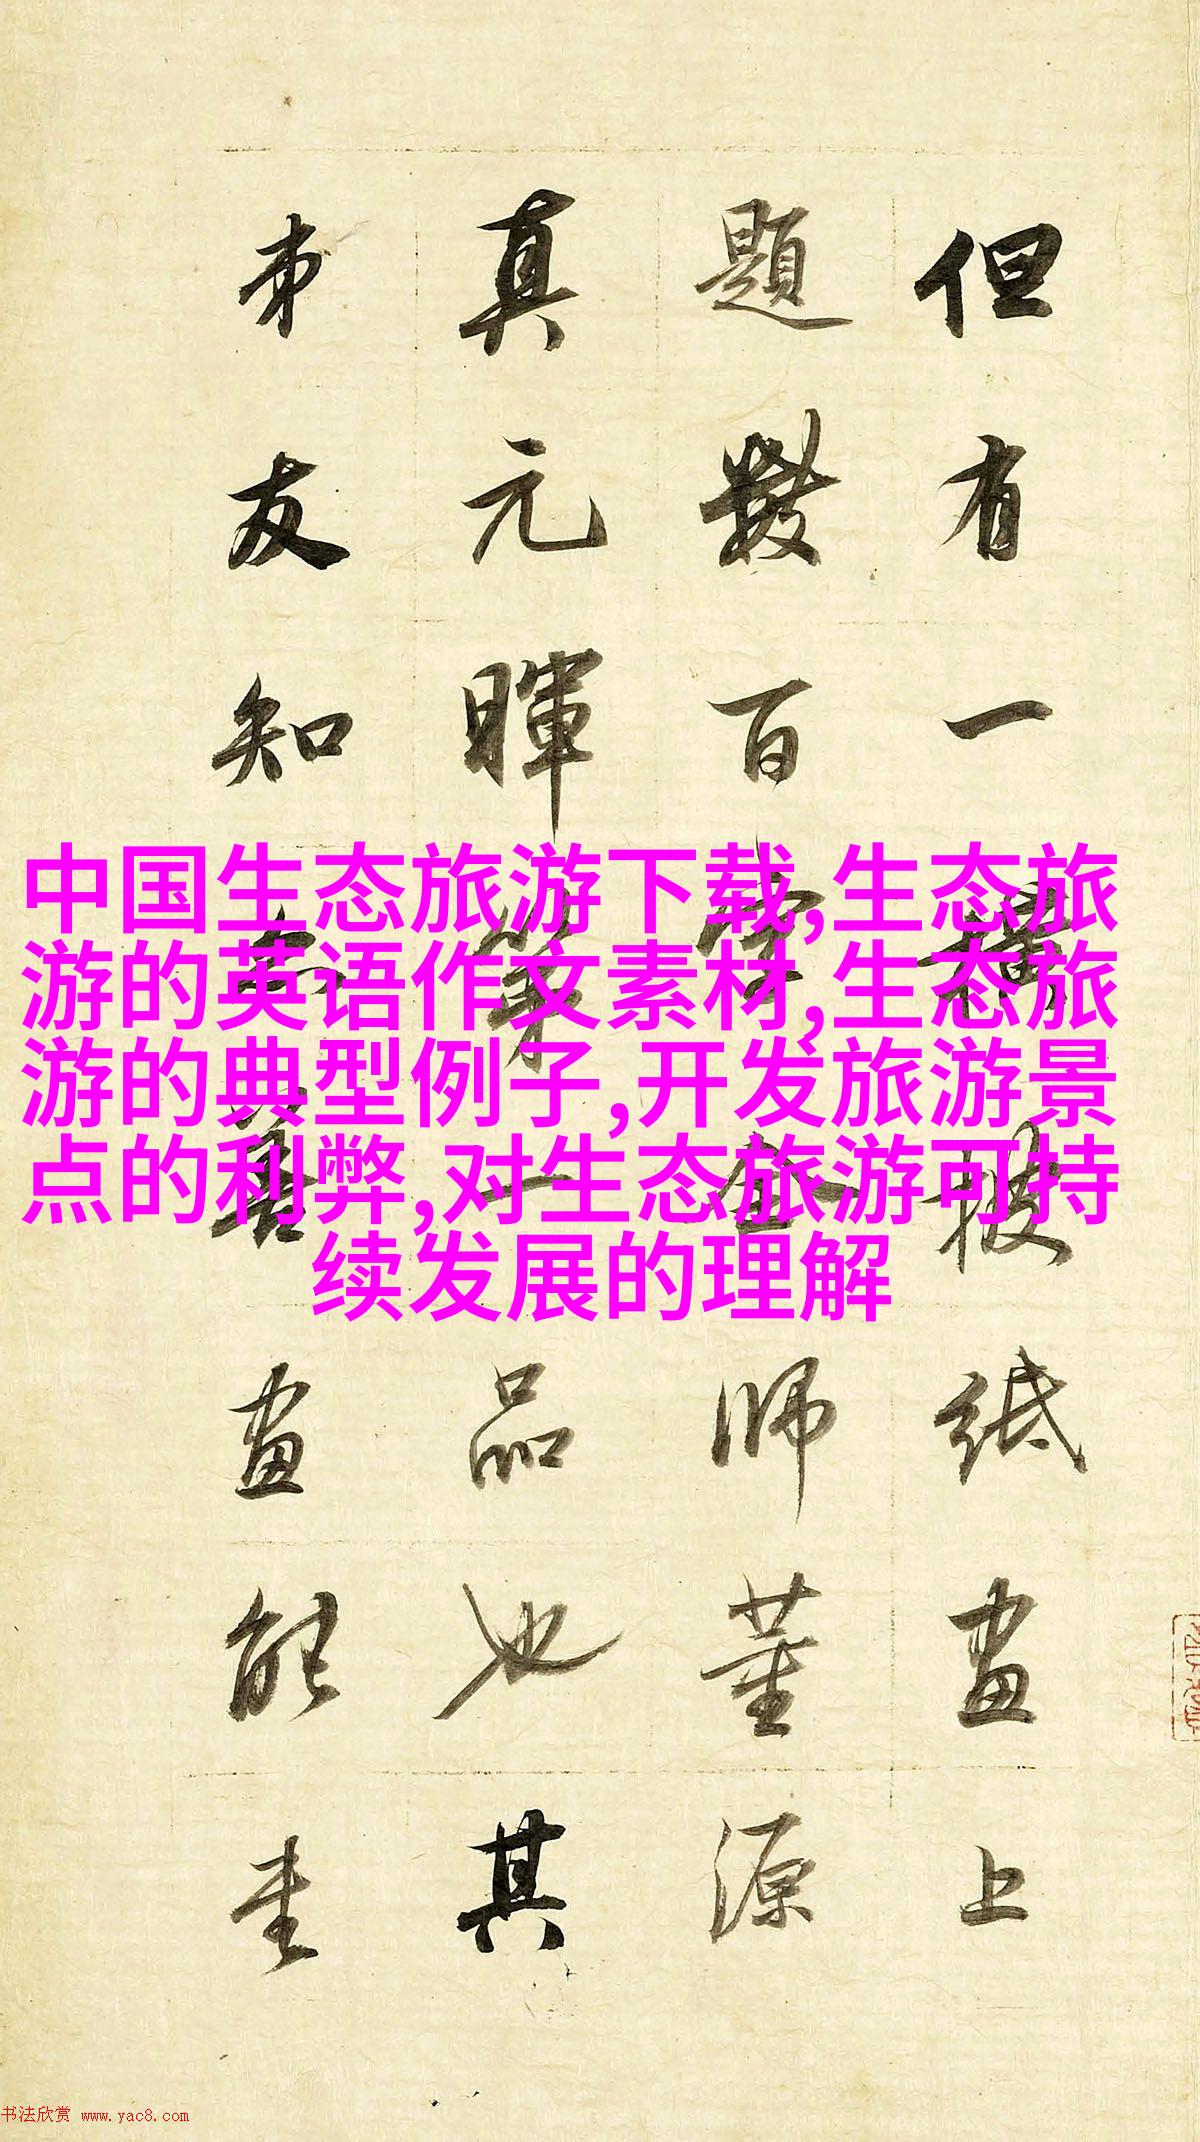 但有一橫披紙畫上
題數百字全師董源
真元暉第一品也其
弟友知亦善畫能
中国生态旅游下载,生态旅
游的英语作文素材,生态旅
游的典型例子,开发旅游景
点的利弊,对生态旅游可持
续发展的理解
书法欣赏 www.yac8.com